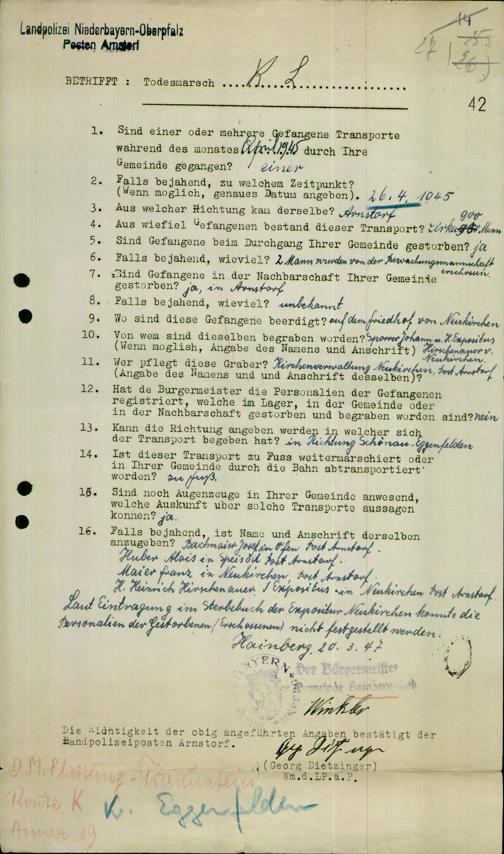 Landpolizei Niederbayern-Oberpfalz
Posten Arnstorf
14
25.
27. (26.)
BETRIFFT : Todesmarsch ....K L....................
42
1. Sind einer oder mehrere Gefangene Transporte
wahrend des monates April 1945 durch Ihre
Gemeinde gegangen? einer
2. Falls bejahend, zu welchem Zeitpunkt?
(Wenn moglich, genaues Datum angeben). 26.4. 1945
3. Aus welcher Richtung kam derselbe? Arnstorf
4. Aus wiefiel Gefangenen bestand dieser Transport? Zirka 900 Mann
5. Sind Gefangene beim Durchgang Ihrer Gemeinde gestorben? ja
6. Falls bejahend, wieviel? 2 Mann wurden von der Bewachungsmannschaft erschossen.
7. Sind Gefangene in der Nachbarschaft Ihrer Gemeinde
gestorben? ja, in Arnstorf
8. Falls bejahend, wieviel? unbekannt
9. Wo sind diese Gefangene beerdigt? auf dem friedhof von Neukirchen
10. Von wem sind dieselben begraben worden? Johann u. H. Expositus
(Wenn moglish, Angabe des Namens und Anschrift) Hirschenauer v.
Neukirchen.
11. Wer pflegt diese Graber? Kirchenverwaltung Neukirchen, Post Arnstorf
(Angabe des Namens und und Anschrift desselben)?
12. Hat de Burgermeister die Personalien der Gefangenen
registriert, welche im Lager, in der Gemeinde oder
in der Nachbarschaft gestorben und begraben worden sind? nein
13. Kann die Richtung angeben werden in welcher sich
der Transport begeben hat? in Richtung Schönau-Eggenfelden
14. Ist dieser Transport zu Fuss weitermarschiert oder
in Ihrer Gemeinde durch die Bahn abtransportiert
worden? zu fuß.
15. Sind noch Augenzeuge in Ihrer Gemeinde anwesend,
welche Auskunft uber solche Transporte aussagen
konnen? ja.
16. Falls bejahend, ist Name und Anschrift derselben
anzugeben? Bachmaier Josef in Ofen Post Arnstorf.
Huber Alois in Post Arnstorf.
Maier franz in Neukirchen, Post Arnstorf
H. Heinrich Hirschenauer, Expositus in Neukirchen Post Arnstorf.
Laut Eintragung im Sterbebuch der Expositur Neukirchen konnte die
Personalien der Gestorbenen (Erschossenen) nicht festgestellt werden.
Hainberg, 20.3.47
BAYERN
Der Bürgermeister
Gemeinde Hainberg
Winkler
Die Richtigkeit der obig angeführten Angaben bestätigt der
Landpolizeiposten Arnstorf.
(Georg Dietzinger)
Wm.d.LP.a.P.
D.M. Plattling-Traunstein
Route K
Annexe 19
Kr. Eggenfelden